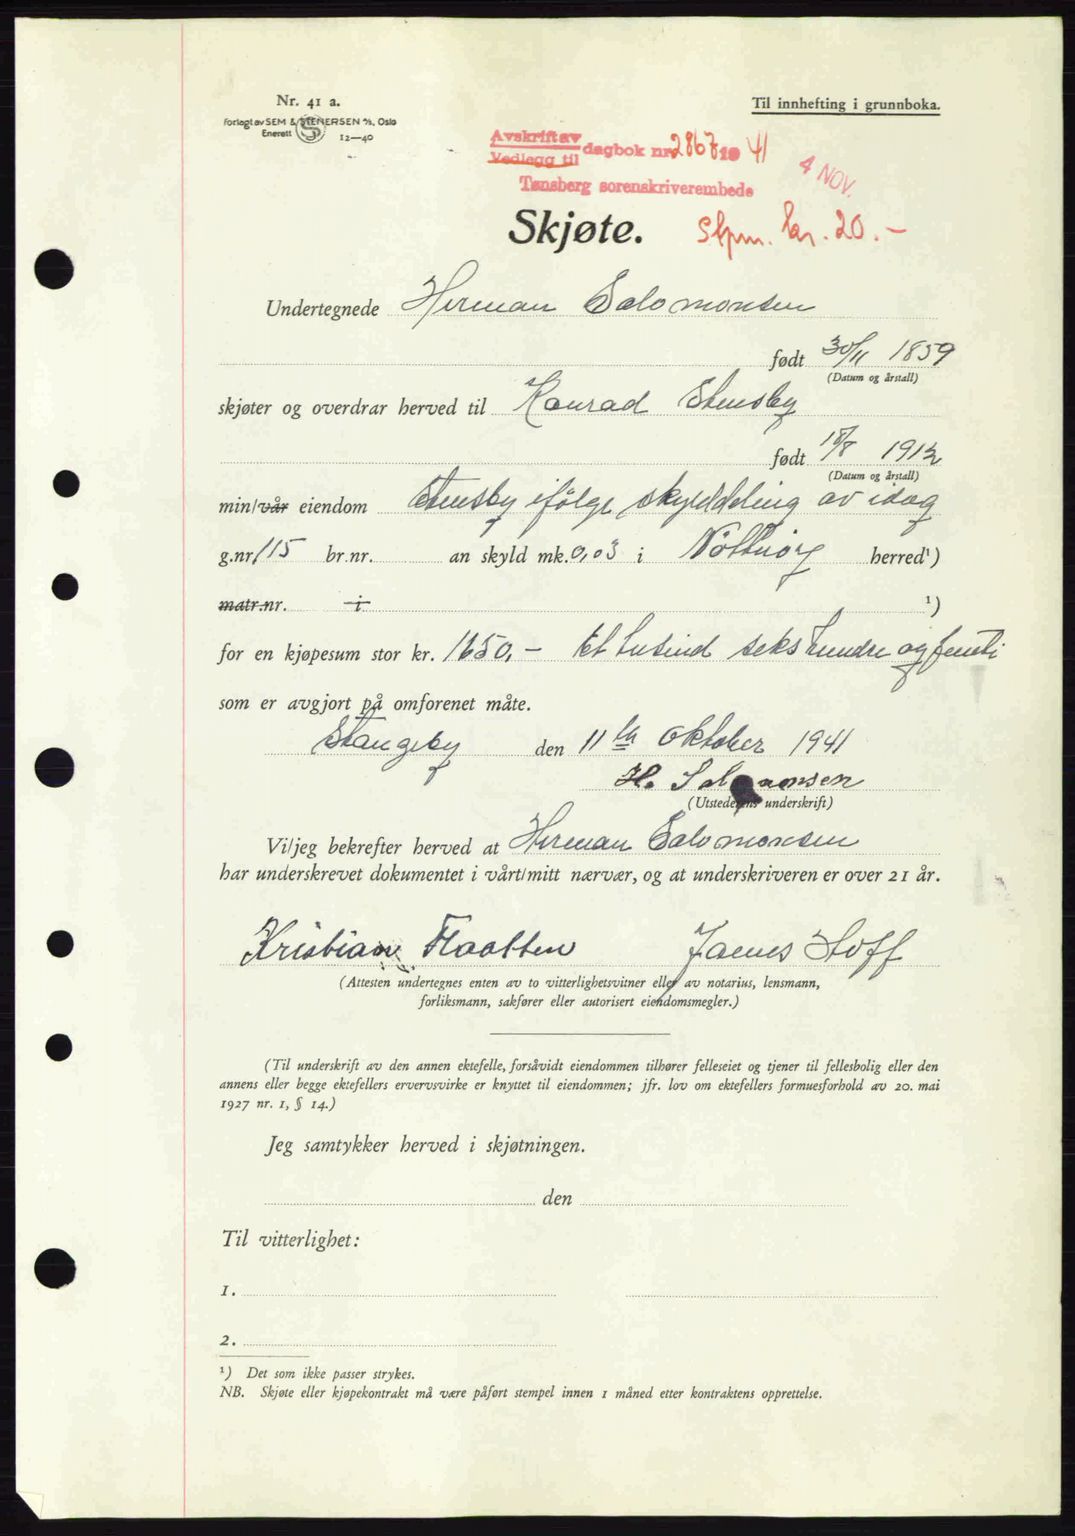 Nr. 41 a.
Forlagt av SEM & STENERSEN A/S, Oslo
Enerett 12—40
Til innhefting i grunnboka.
Avskrift av
Vedlegg til dagbok nr. 2867 19 41
Tønsberg sorenskriverembede
4 NOV.
Skjøte.
Stpm. kr. 20.-
Undertegnede Herman Salomonsen
født 30/11 1859
(Datum og årstall)
skjøter og overdrar herved til Konrad Stensby
født 18/8 1912
(Datum og årstall)
min/vår eiendom Stensby ifølge skylddeling av idag
g.nr. 115 br.nr. an skyld mk. 0,03 i Nøtterøy herred¹)
matr.nr. i ¹)
for en kjøpesum stor kr. 1650,- Et tusind seks hundre og femti
som er avgjort på omforenet måte.
Stangeby den 11te Oktober 1941
H. Salomonsen
(Utstederens underskrift)
Vi/jeg bekrefter herved at Herman Salomonsen
har underskrevet dokumentet i vårt/mitt nærvær, og at underskriveren er over 21 år.
Kristian Flaatten James Hoff
(Attesten undertegnes enten av to vitterlighetsvitner eller av notarius, lensmann,
forliksmann, sakfører eller autorisert eiendomsmegler.)
(Til underskrift av den annen ektefelle, forsåvidt eiendommen tilhører felleseiet og tjener til fellesbolig eller den
annens eller begge ektefellers ervervsvirke er knyttet til eiendommen; jfr. lov om ektefellers formuesforhold av 20. mai
1927 nr. 1, § 14.)
Jeg samtykker herved i skjøtningen.
den
Til vitterlighet:
1.
2.
¹) Det som ikke passer strykes.
NB. Skjøte eller kjøpekontrakt må være påført stempel innen 1 måned etter kontraktens opprettelse.